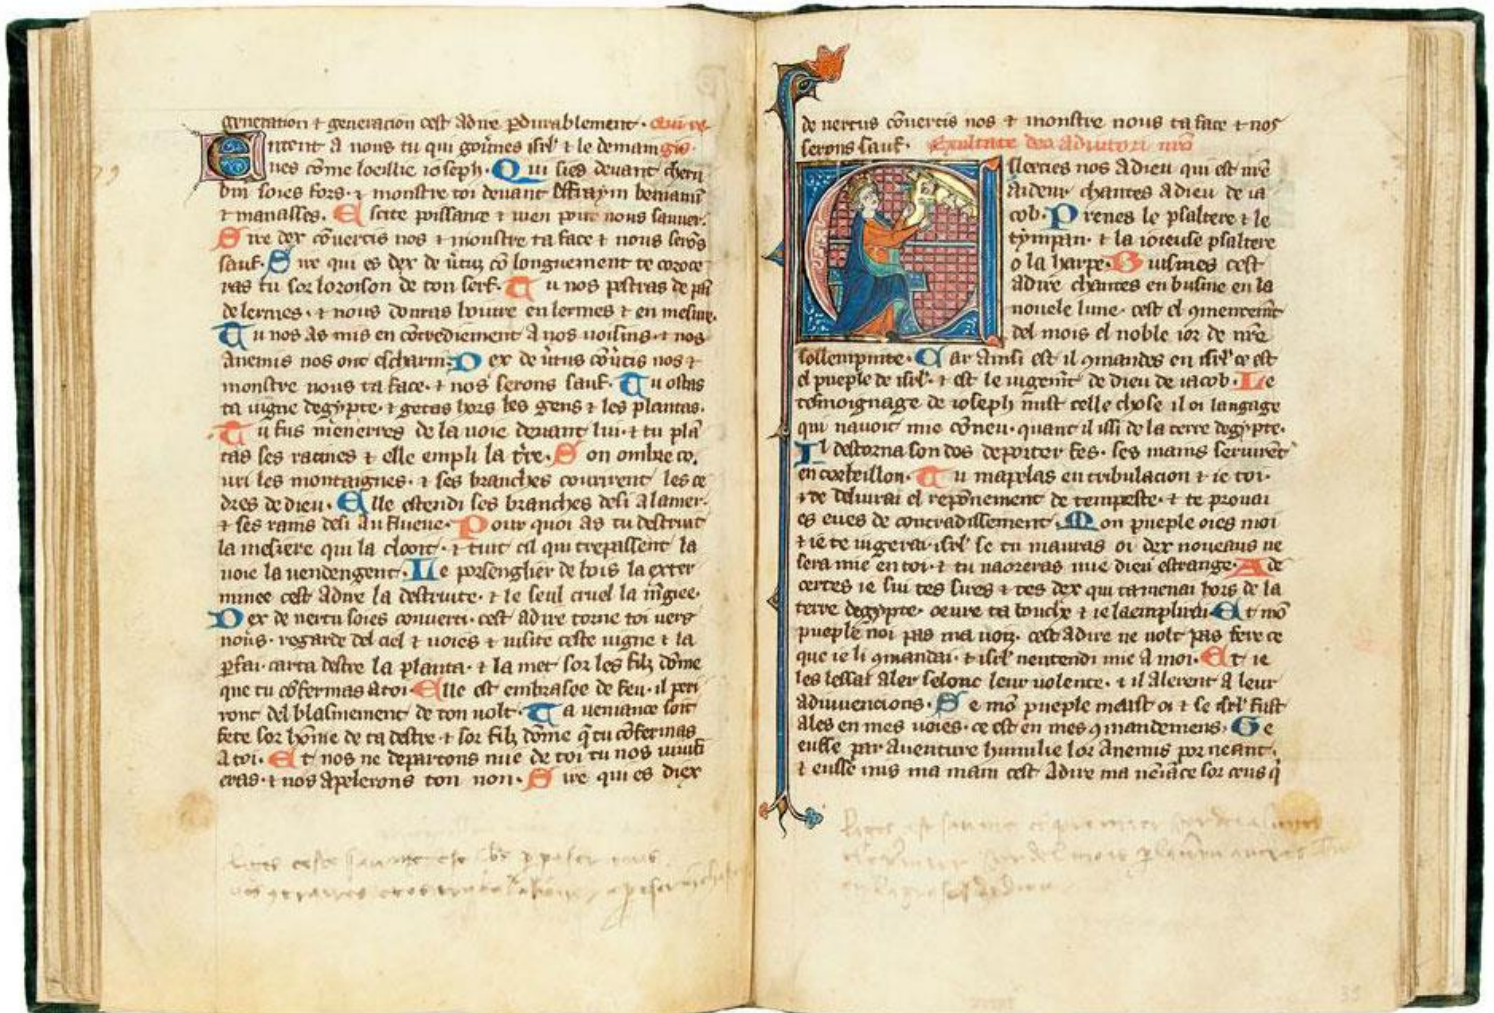 generation ⁊ generacion cest adire pdurablement. Qui re
Entent a nous tu qui gou̾nes isrl' ⁊ le demain gis
nes cōme loeillie ioseph. Qui sies devant cheru
bin soies fors. ⁊ monstre toi devant Effraym beniamī
⁊ manasses. Escite poissance ⁊ vien pour nous sauver.
Sire dex cōvertis nos ⁊ monstre ta face ⁊ nous serōs
sauf. Sire qui es dex de v̾tuz cō longuement te coroce
ras tu sor loroison de ton serf. Tu nos pestras de pai
de lermes. ⁊ nous donras boivre en lermes ⁊ en mesure.
Tu nos as mis en cōtredisement a nos voisins. ⁊ nos
anemis nos ont escharni. Dex de v̾tus cōv̾tis nos ⁊
monstre nous ta face. ⁊ nos serons sauf. Tu ostas
ta vigne degypte. ⁊ getas hors les gens ⁊ les plantas.
Tu fus menerres de la voie devant lui. ⁊ tu plā
tas ses racines ⁊ elle empli la t̾re. Son ombre co.
uri les montaignes. ⁊ ses branches couvrirent les ce
dres de dieu. Elle estendi ses branches desi a la mer.
⁊ ses rams desi au flueue. Pour quoi as tu destruit
la mesiere qui la clooit. ⁊ tuit cil qui trepassent la
uoie la uendengent. Le porsenglier de bois la exter
minee cest adire la destruite. ⁊ le seul cruel la m̄giee.
Dex de uertu soies conuerti. cest adire torne toi uers
nous. regarde del ciel ⁊ uoies ⁊ uisite ceste uigne ⁊ la
pfai. car ta destre la planta. ⁊ la met sor les filz dōme
que tu cōfermas a toi. Elle est embrasee de feu. il peri
ront del blasmement de ton uolt. Ta ueniance soit
fete sor hōme de ta destre. ⁊ sor filz dōme q̄ tu cōfermas
a toi. Et nos ne departons mie de toi tu nos uiuifi
eras. ⁊ nos apelerons ton non. Sire qui es diex
de uertus cōuertis nos ⁊ monstre nous ta face ⁊ nos
serons sauf. Exultate deo adiutori nr̄o
Sleecies nos a dieu qui est nr̄e
aideur chantes a dieu de ia
cob. Prenes le psaltere ⁊ le
tympan. ⁊ la ioieuse psaltere
o la harpe. Buisines cest
adire chantes en busine en la
nouele lune. cest el 9mencemt̄
del mois el noble ior de nr̄e
sollempnite. Car ainsi est il 9mandes en isrl' ce est
el pueple de isrl'. ⁊ est le iugemt̄ de dieu de iacob. Le
tesmoignage de ioseph mist celle chose il oi langage
qui nauoit mie cōneu. quant il issi de la terre degypte.
Il destorna son dos de porter fes. ses mains seruirēt
en corbeillon. Tu mapelas en tribulacion ⁊ ie toi.
⁊ te deliurai el reponement de tempeste. ⁊ te prouai
es eues de contradissement. Mon pueple oies moi
⁊ ie te iugerai. isrl' se tu mauras oi dex noueaus ne
sera mie en toi. ⁊ tu naoreras mie dieu estrange. A de
certes ie sui tes sires ⁊ tes dex qui ta menai hors de la
terre degypte. oeure ta bouche ⁊ ie laemplirai. Et mō
pueple noi pas ma uoiz. cest adire ne uolt pas fere ce
que ie li 9mandai. ⁊ isrl' nentendi mie a moi. Et ie
les lessai aler selonc leur uolente. ⁊ il alerent a leur
adiuuencions. Se mō pueple meust oi ⁊ se isrl' fust
ales en mes uoies. ce est en mes 9mandemens. Ge
eusse par auenture humilie lor anemis por neant.
⁊ eusse mis ma main cest adire ma uēiāce sor ceus q̄
35